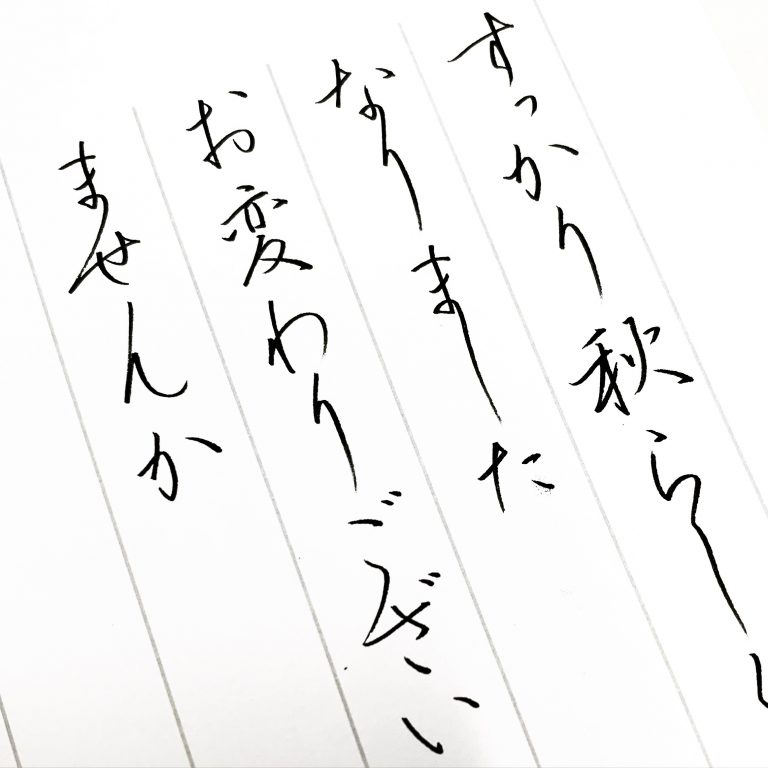 すっかり秋らし
なりました
お変わりござい
ませんか